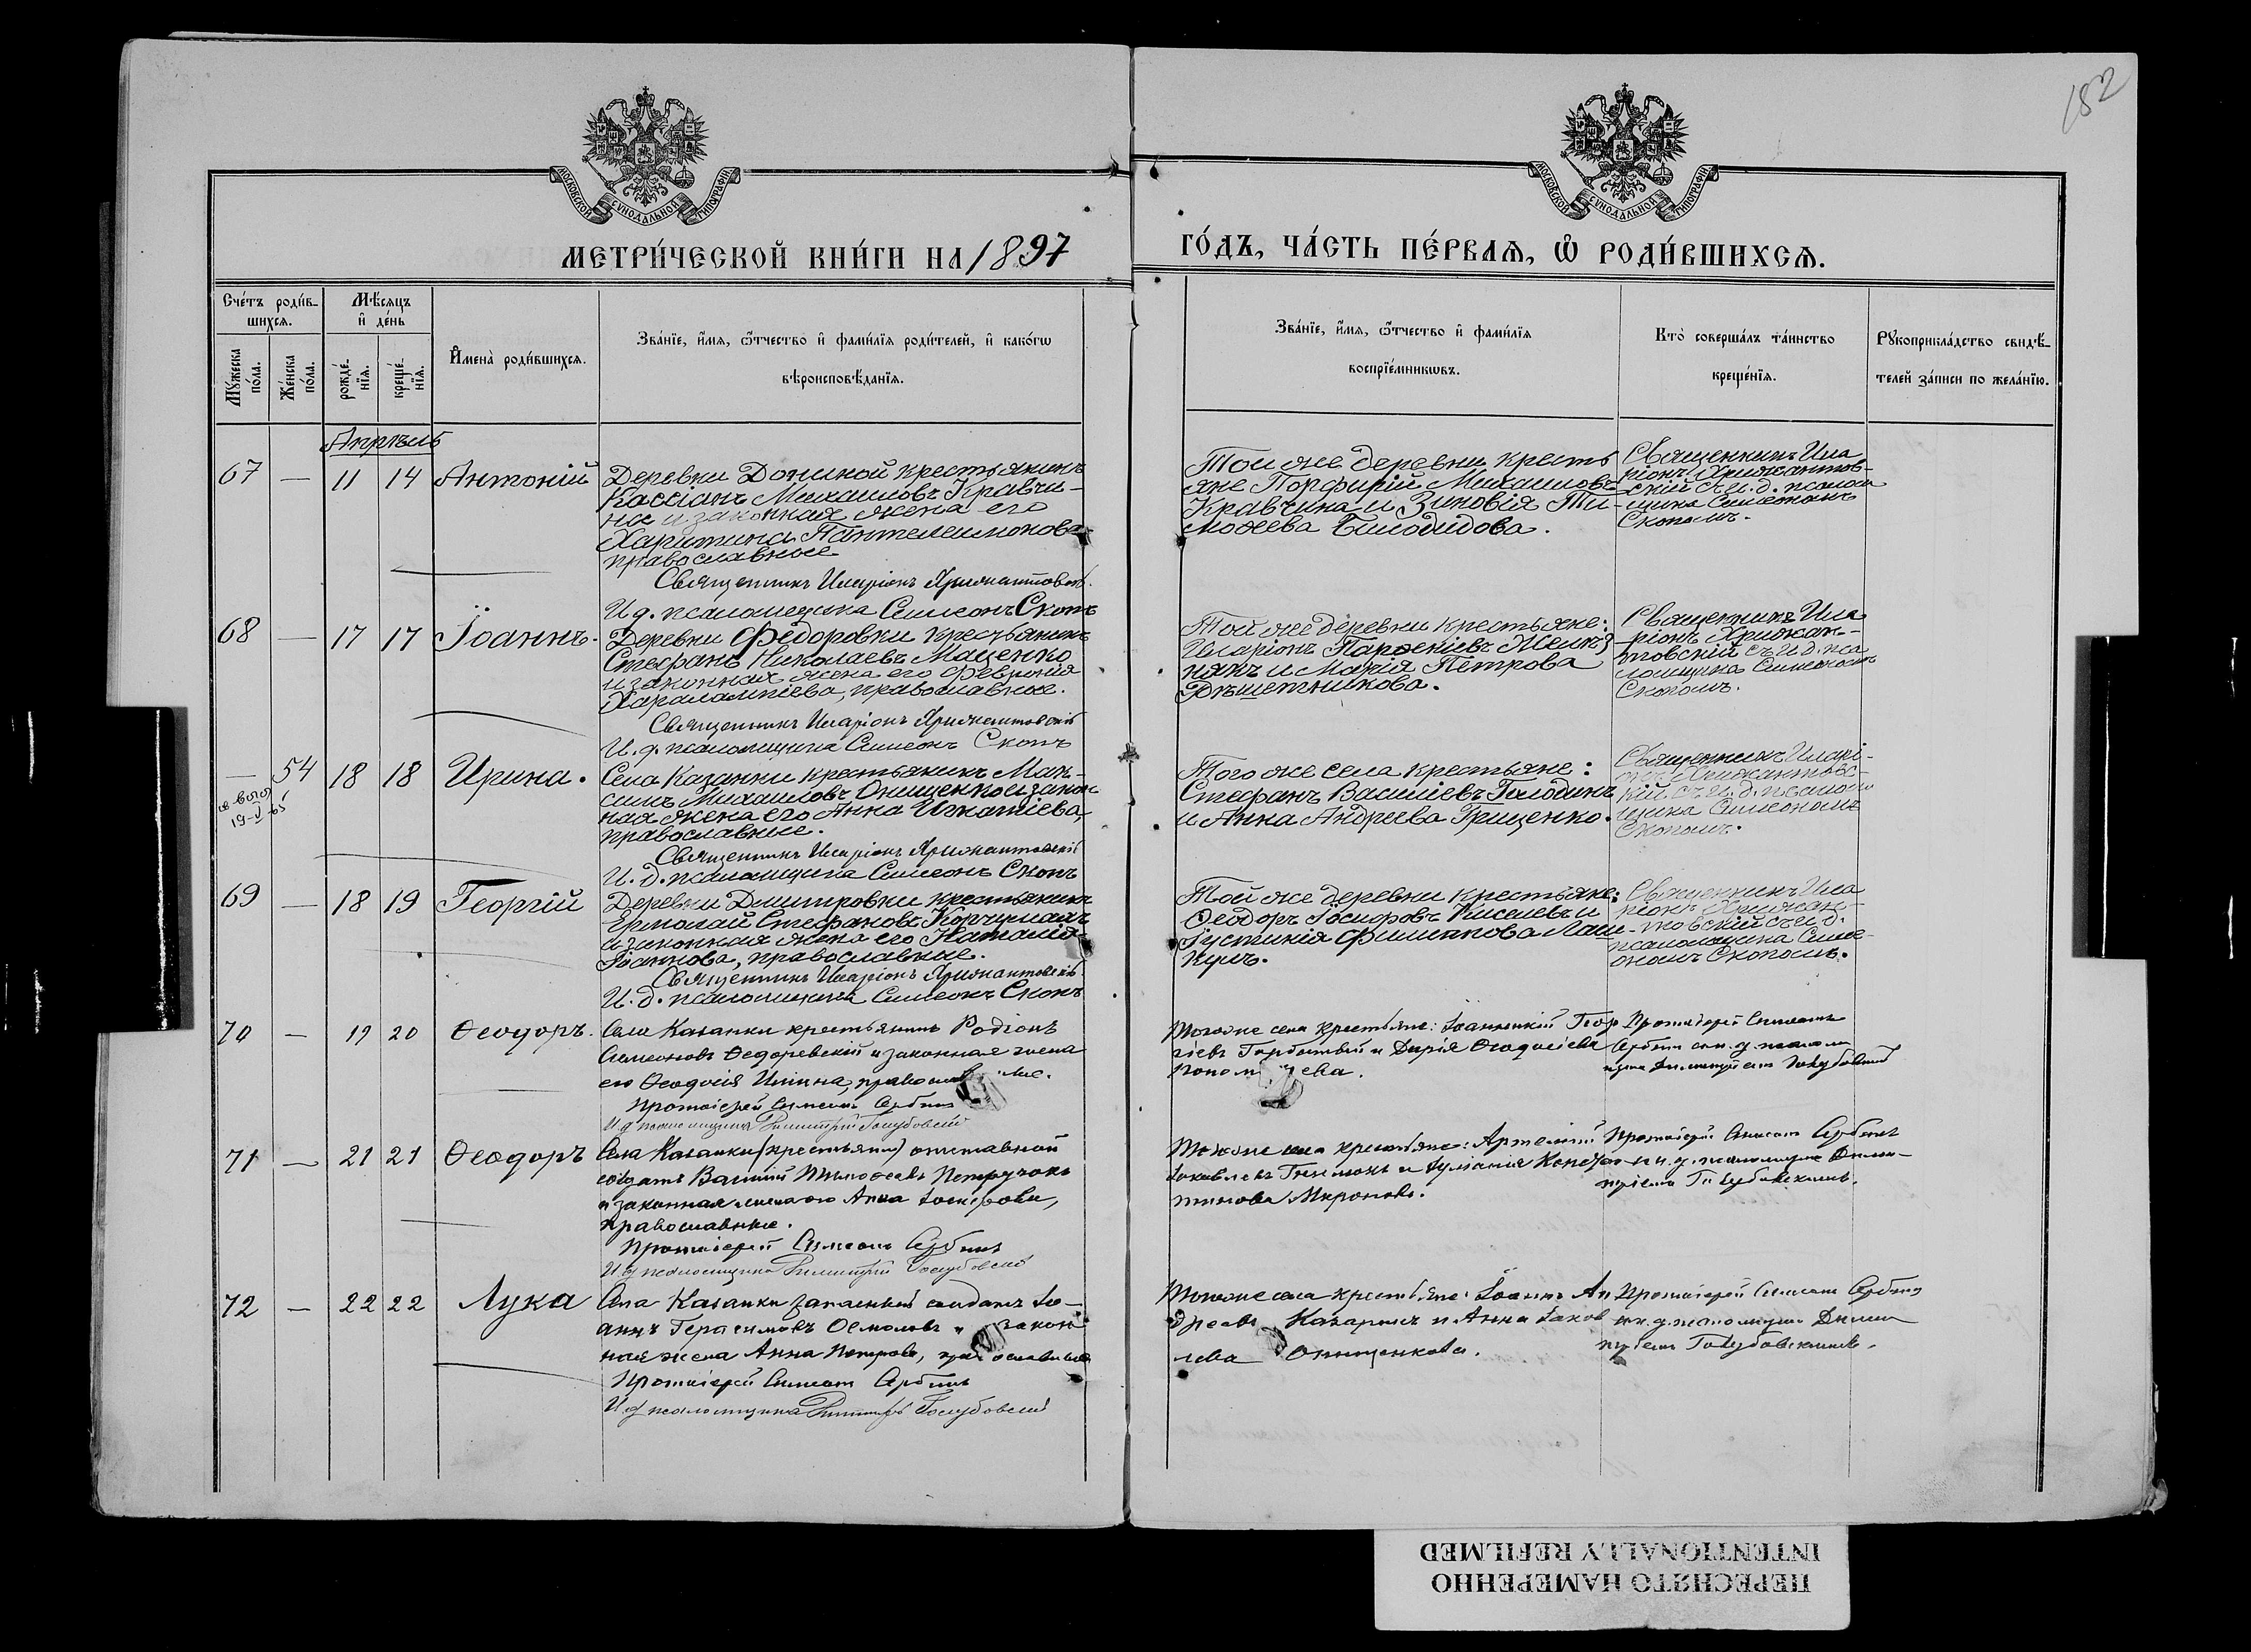 182
МОСКОВСКОЙ СѴНОДАЛЬНОЙ ТИПОГРАФІИ
МОСКОВСКОЙ СѴНОДАЛЬНОЙ ТИПОГРАФІИ
МЕТРИ́ЧЕСКОЙ КНИ́ГИ НА 1897
ГО́ДЪ, ЧА́СТЬ ПЕ́РВАѦ, Ѽ РОДИ́ВШИХСѦ.
Сче́тъ роди́в-
шихсѧ.
Мꙋ́жеска по́ла.
Же́нска по́ла.
Мѣ́сѧцъ
и҆ де́нь
рожде́-
нїѧ.
креще́-
нїѧ.
И҆мена̀ роди́вшихсѧ.
Зва́нїе, и҆́мѧ, ѻ҆́тчество и҆ фами́лїѧ роди́телей, и҆ како́гѡ
вѣроисповѣ́данїѧ.
Зва́нїе, и҆́мѧ, ѻ҆́тчество и҆ фами́лїѧ
воспрїе́мникѡвъ.
Кто̀ соверша́лъ та́инство
креще́нїѧ.
Рꙋкоприкла́дство свидѣ́-
телей за́писи по жела́нїю.
Апрѣль
67 — 11 14 Антоній
Деревни Дониной крестьянинъ
Кассіанъ Михаиловъ Кравчи-
на и законная жена его
Харитина Пантелеимонова
православные
Священникъ Иларіонъ Хрисантовскій
И. д. псаломщика Симеонъ Скопъ
Той же деревни кресть
яне Порфирій Михаиловъ
Кравчина и Зиновія Ти-
мофеева Билодидова.
Священникъ Ила
ріонъ Хрисантов-
скій съ и. д. псалом
щика Симеономъ
Скопомъ.
68 — 17 17 Іоаннъ.
Деревни Федоровки крестьянинъ
Стефанъ Николаевъ Маценко
и законная жена его Февронія
Харалампіева, православные.
Священникъ Иларіонъ Хрисантовскій
И. д. псаломщика Симеонъ Скопъ
Той же деревни крестьяне:
Иларіонъ Парфеніевъ
и Марія Петрова
Рѣшетникова.
Священникъ Ила
ріонъ Хрисан-
товскій съ и. д. пса
ломщика Симеономъ
Скопомъ.
— 54 18 18 Ирина.
19-V-65
Села Казанки крестьянинъ Мак-
симъ Михаиловъ Онищенко и закон
ная жена его Анна Игнатіева,
православные.
Священникъ Иларіонъ Хрисантовскій
И. д. псаломщика Симеонъ Скопъ
Того же села крестьяне:
Стефанъ Василіевъ Голодинъ
и Анна Андреева Грищенко.
Священникъ Иларі-
онъ Хрисантовс-
кій съ и. д. псалом
щика Симеономъ
Скопомъ.
69 — 18 19 Георгій
Деревни Дмитровки крестьянинъ
Ермолай Стефановъ
и законная жена его Наталія
Іоаннова, православные.
Священникъ Иларіонъ Хрисантовскій
И. д. псаломщика Симеонъ Скопъ
Той же деревни крестьяне:
Феодоръ Іосифовъ Киселевъ и
Іустинія Филиппова
Священникъ Ила
ріонъ Хрисан-
товскій съ и. д.
псаломщика Симе-
ономъ Скопомъ.
70 — 19 20 Ѳеодоръ.
Села Казанки крестьянинъ Родіонъ
Симеоновъ Ѳедоревскій и законная жена
его Ѳеодосія Ильина, православные.
Протоіерей Симеонъ Сербинъ
И д псаломщика Димитрій Голубовскій
Того же села крестьяне: Іоанникій Геор
гіевъ Горбатый и Дарія Ѳеодосіева
Протоіерей Симеонъ
Сербинъ съ и. д. псалом
щика Димитріемъ Голубовскимъ
71 — 21 21 Ѳеодоръ
Села Казанки (крестьянин) отставной
солдатъ Василій Тимофеевъ
и законная жена его Анна Іосифова,
православные.
Протоіерей Симеонъ Сербинъ
И д псаломщика Димитрій Голубовскій
Того же села крестьяне: Артемій
Іаковлевъ и Іуліанія Конста-
нтинова Миронова.
Протоіерей Симеонъ Сербинъ
съ и. д. псаломщика Дими-
тріемъ Голубовскимъ.
72 — 22 22 Лука
Села Казанки запасный солдатъ Іо-
аннъ Герасимовъ и закон
ная жена Анна Петрова, православные
Протоіерей Симеонъ Сербинъ
И д псаломщика Димитрій Голубовскій
Того же села крестьяне: Іоаннъ Ан
дреевъ и Анна Іаков
лева Онищенкова.
Протоіерей Симеонъ Сербинъ
съ и. д. псаломщика Дими
тріемъ Голубовскимъ.
ПЕРЕСНЯТО НАМЕРЕННО
INTENTIONALLY REFILMED